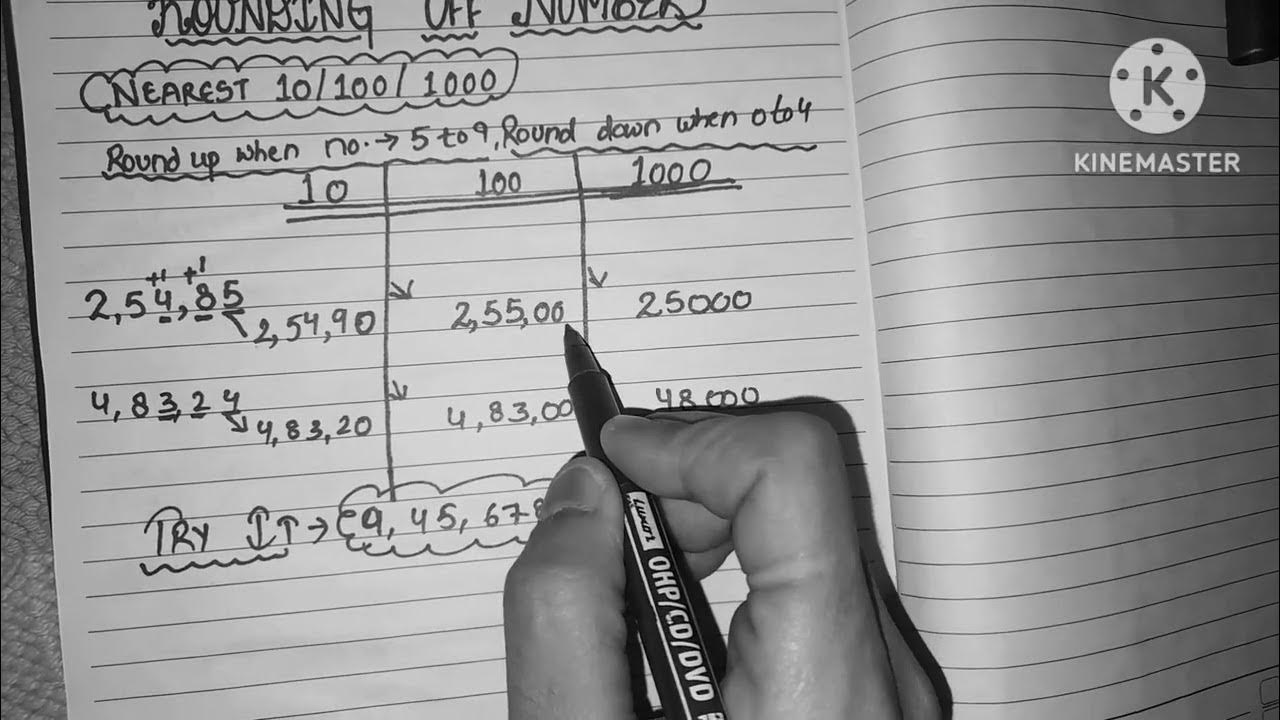 ROUNDING OFF NUMBER
NEAREST 10/100/1000
Round up when no. → 5 to 9, Round down when 0 to 4
10 100 1000
+1 +1
2,54,85 2,54,90 2,55,00 25000
4,83,24 4,83,20 4,83,00 48000
TRY IT → 9,45,678
Luxor OHP/CD/DVD
K
KINEMASTER